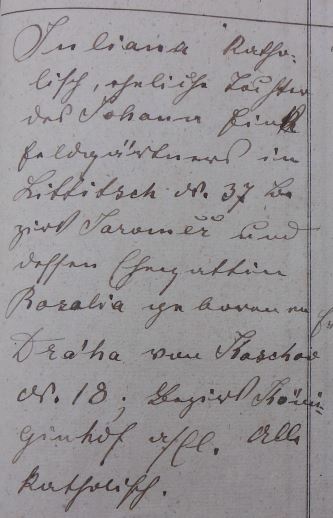 Juliana Katho-
lisch, eheliche Tochter
des Johann Fink
Feldgärtners in
Littitsch N. 37 Be
zirk Jaroměř und
dessen Ehegattin
Rosalia geborenen
Dráha von Kaschov
N. 18, Bezirk Köni-
ginhof a/El. Alle
katholisch.